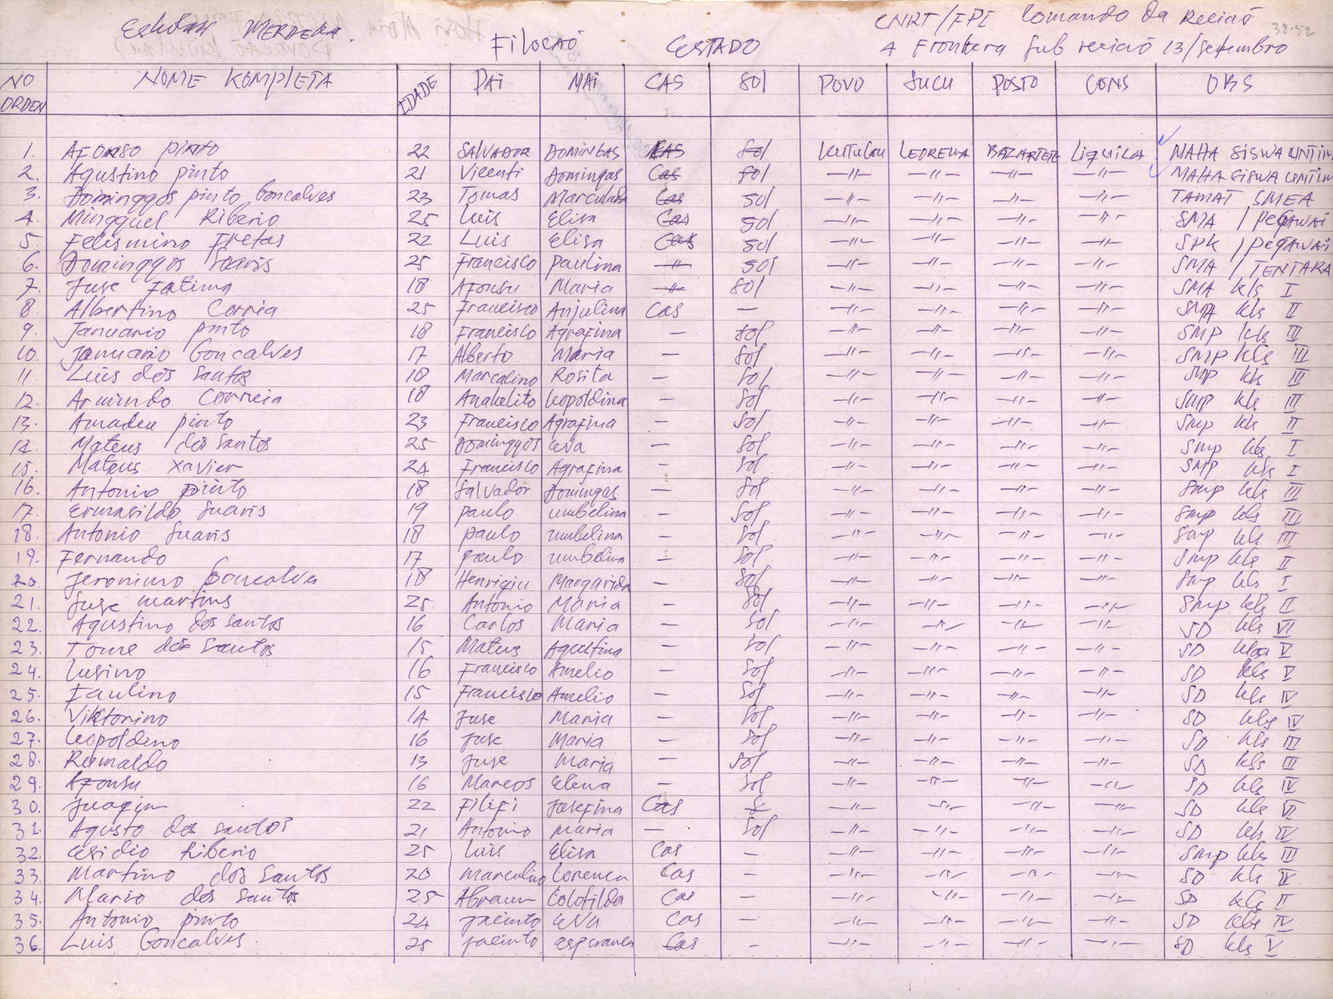 MERDEKA. CNRT/FPI Comando da Reciaõ
Filocaõ ESTADO A Frontera Sub reciaõ 13/Setembro
NO ORDEN NOME KOMPLETA IDADE PAI MAI CAS SOl POVO SUCU POSTO CONS OBS
1. AFONSO pinto 22 SALVADOR DOMINGAS CAS SOl LEOREMA BAZARTETE LiquiCA MAHA SISWA UNTIM
2. Agustino pinto 21 Vicenti Domingas Cas SOl —"— —"— —"— —"— MAHA SISWA UNTIM
3. Dominggos pinto Goncalves 23 Tomas Cas SOl —"— —"— —"— —"— TAMAT SMEA
4. Mingguel Riberio 25 Luis Elisa Cas SOl —"— —"— —"— —"— SMA / PEGAWAI
5. Felismino Fretas 22 Luis Elisa Cas SOl —"— —"— —"— —"— SPK / PEGAWAI
6. Dominggos Soaris 25 Francisco Paulina —"— SOl —"— —"— —"— —"— SMA / TENTARA
7. Juse Fatima 18 Afonsu Maria —"— SOl —"— —"— —"— —"— SMA kls I
8 Albertino Correia 25 Francisco Anjulina Cas — —"— —"— —"— —"— kls II
9. Januario pinto 18 Francisco Agrafina — SOl —"— —"— —"— —"— SMP kls III
10. Januario Goncalves 17 Alberto Maria — SOl —"— —"— —"— —"— SMP kls III
11 Luis dos Santos 18 Marcalino Rosita — SOl —"— —"— —"— —"— SMP kls III
12. Armindo Correia 18 Anakelito Leopoldina — SOl —"— —"— —"— —"— SMP kls III
13. Amadeu pinto 23 Francisco Agrafina — SOl —"— —"— —"— —"— SMP kls II
14. Mateus dos Santos 25 Dominggos Eva — SOl —"— —"— —"— —"— SMP kls I
15. Mateus Xavier 24 Francisco Agrafina — SOl —"— —"— —"— —"— SMP kls I
16. Antonio pinto 18 Salvador Domingas — SOl —"— —"— —"— —"— SMP kls III
17. Ermasildo Suaris 19 paulo umbelina — SOl —"— —"— —"— —"— SMP kls III
18. Antonio Suaris 18 paulo umbelina — SOl —"— —"— —"— —"— SMP kls III
19. Fernando 17 paulo umbelina — SOl —"— —"— —"— —"— SMP kls II
20 Jeronimo Goncalva 18 Henriqiu Margarida — SOl —"— —"— —"— —"— SMP kls I
21. Juse martins 25 Antonio Maria — SOl —"— —"— —"— —"— SMP kls II
22. Agustino dos Santos 16 Carlos Maria — SOl —"— —"— —"— —"— SD kls VI
23. Tome dos Santos 15 Mateus Agustina — SOl —"— —"— —"— —"— SD klas V
24. Lusino 16 Francisco Amelio — SOl —"— —"— —"— —"— SD kls V
25. Faulino 15 Francisco Amelio — SOl —"— —"— —"— —"— SD kls IV
26. Viktorino 14 Juse Maria — SOl —"— —"— —"— —"— SD kls IV
27. Leopoldino 16 Juse Maria — SOl —"— —"— —"— —"— SD kls III
28. Rumaldo 13 Juse Maria — SOl —"— —"— —"— —"— SD kls III
29. Afonsu 16 Marcos Elena — SOl —"— —"— —"— —"— SD kls IV
30. Juaqin 22 Filipi Josefina Cas —"— —"— —"— —"— SD kls VI
31. Agusto dos santos 21 Antonio Maria — SOl —"— —"— —"— —"— SD kls IV
32. Riberio 25 Luis Elisa Cas — —"— —"— —"— —"— SMP kls III
33. Martino dos Santos 20 Marculino Lorenca Cas — —"— —"— —"— —"— SD kls IV
34. Mario dos Santos 25 Abraun Colotilda Cas — —"— —"— —"— —"— SD kls II
35. Antonio pinto 24 Jacinto EVA Cas — —"— —"— —"— —"— SD kls IV
36. Luis Goncalves. 25 Jacinto Esperanca Cas — —"— —"— —"— —"— SD kls V